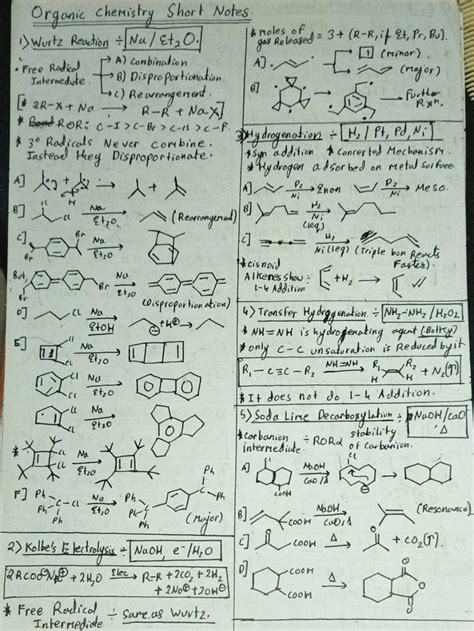 Organic Chemistry Short Notes.
1) Wurtz Reaction ÷ Na/Et₂O.
* Free Radical Intermediate
A) Combination
B) Disproportionation
C) Rearrangement.
[* 2R-X + Na → R-R + NaX]
* ROR: C-I > C-Br > C-Cl > C-F.
* 3° Radicals Never Combine.
Instead they Disproportionate.
A]
B] Cl Na Et₂O (Rearrangement)
C] Br Na Et₂O
Br
But, Br Na Et₂O
Br (Disproportionation)
D] Cl Na EtOH
E] Cl Na Et₂O
Cl
Cl Na Et₂O
Cl
Cl Na Et₂O
Cl
* Cl Na Et₂O
Cl
F] Ph Ph C-Cl Na Et₂O Ph
Ph (Major)
2) Kolbe's Electrolysis ÷ NaOH, e⁻/H₂O
2RCOO⁻Na⁺ + 2H₂O Elec → R-R + 2CO₂ + 2H₂
+ 2Na⁺ + 2OH⁻
* Free Radical Intermediate ÷ same as Wurtz.
* moles of gas Released = 3 + (R-R, if Et, Pr, Bu).
A] (Minor)
(Major)
B] Further Rxn.
3) Hydrogenation ÷ H₂/Pt, Pd, Ni
* Syn addition * Concerted Mechanism.
* Hydrogen adsorbed on metal surface
A] P₂ Ni P₂ Ni Meso.
B] H₂ Ni (1eq)
C] H₂ Ni (1eq) (Triple bon Reacts Faster).
* Cisnoid Alkenes show 1-4 Addition + H₂
4) Transfer Hydrogenation ÷ NH₂-NH₂/H₂O₂
* NH=NH is hydrogenating agent
* only C-C unsaturation is Reduced by it
R₁-C≡C-R₂ NH=NH → R₁ C=C R₂ + N₂(↑)
H H
* It does not do 1-4 Addition.
5) Soda Lime Decarboxylation ÷ NaOH/CaO Δ
* Carbanion intermediate ÷ ROR α stability of Carbanion.
A] Cl NaOH CaO/Δ
COOH
B] COOH NaOH CaO/Δ (Resonance)
C] COOH Δ + CO₂(↑).
D] COOH Δ
COOH